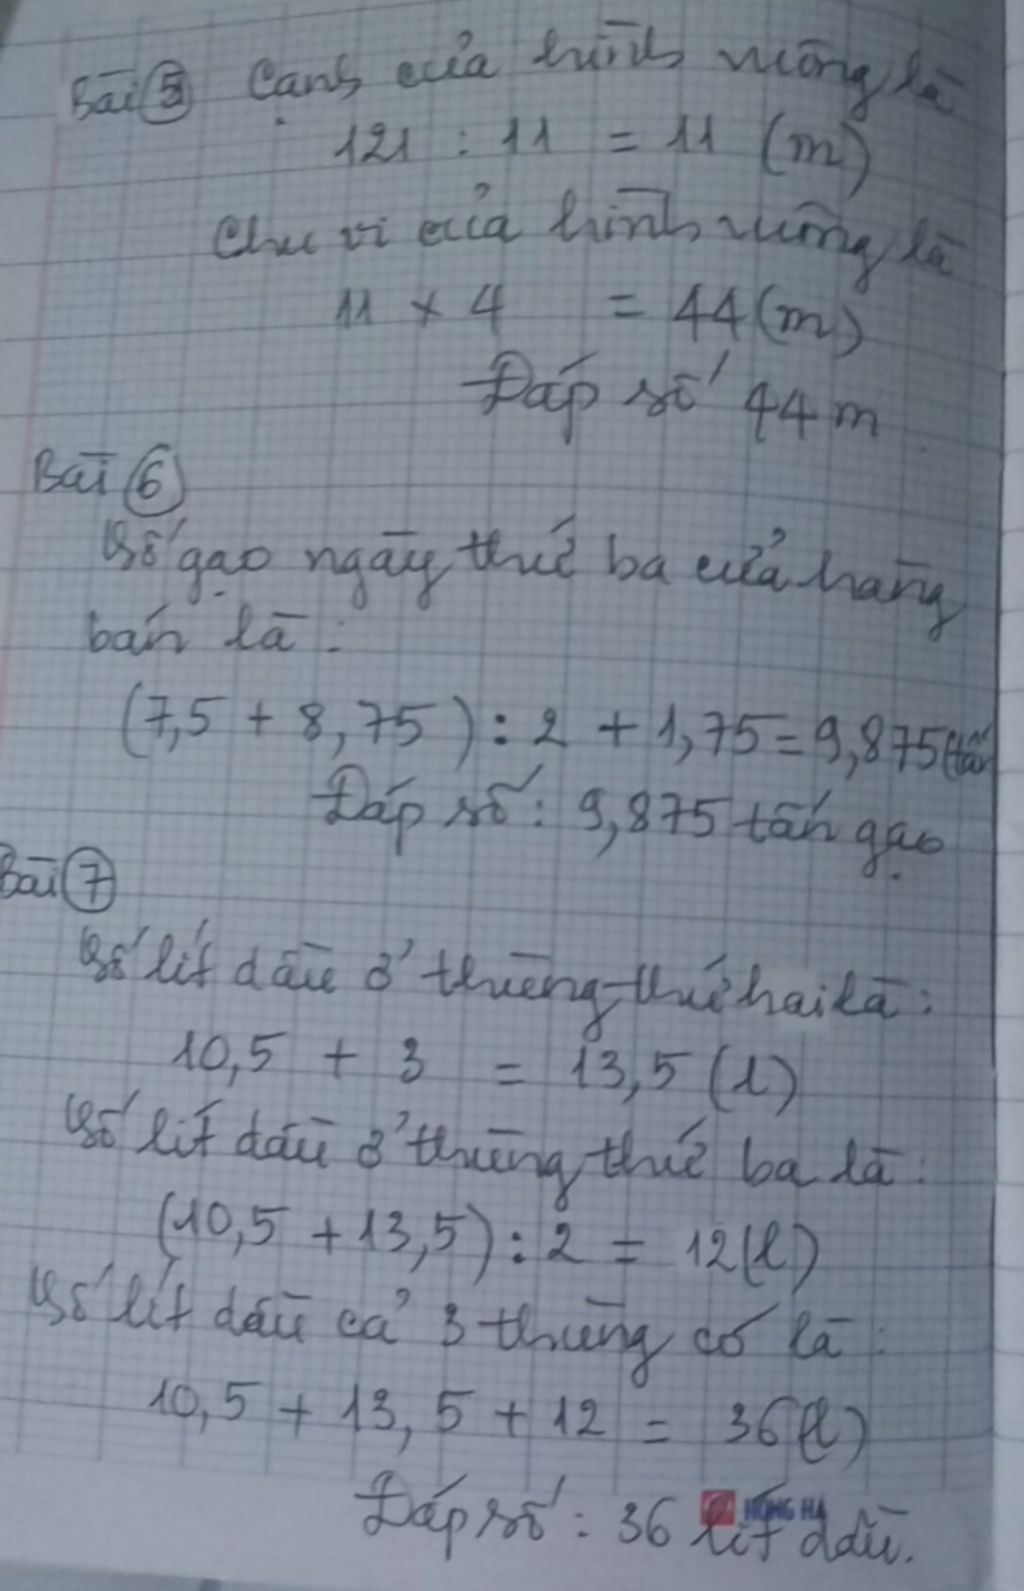 Bài 5 Cạnh của hình vuông là
121 : 11 = 11 (m)
Chu vi của hình vuông là
11 x 4 = 44 (m)
Đáp số 44 m
Bài 6
Số gạo ngày thứ ba cửa hàng
bán là :
(7,5 + 8,75) : 2 + 1,75 = 9,875 (tấn
Đáp số : 9,875 tấn gạo
Bài 7
Số lít dầu ở thùng thứ hai là :
10,5 + 3 = 13,5 (l)
Số lít dầu ở thùng thứ ba là :
(10,5 + 13,5) : 2 = 12 (l)
Số lít dầu cả 3 thùng có là :
10,5 + 13,5 + 12 = 36 (l)
Đáp số : 36 lít dầu.
HONG HA